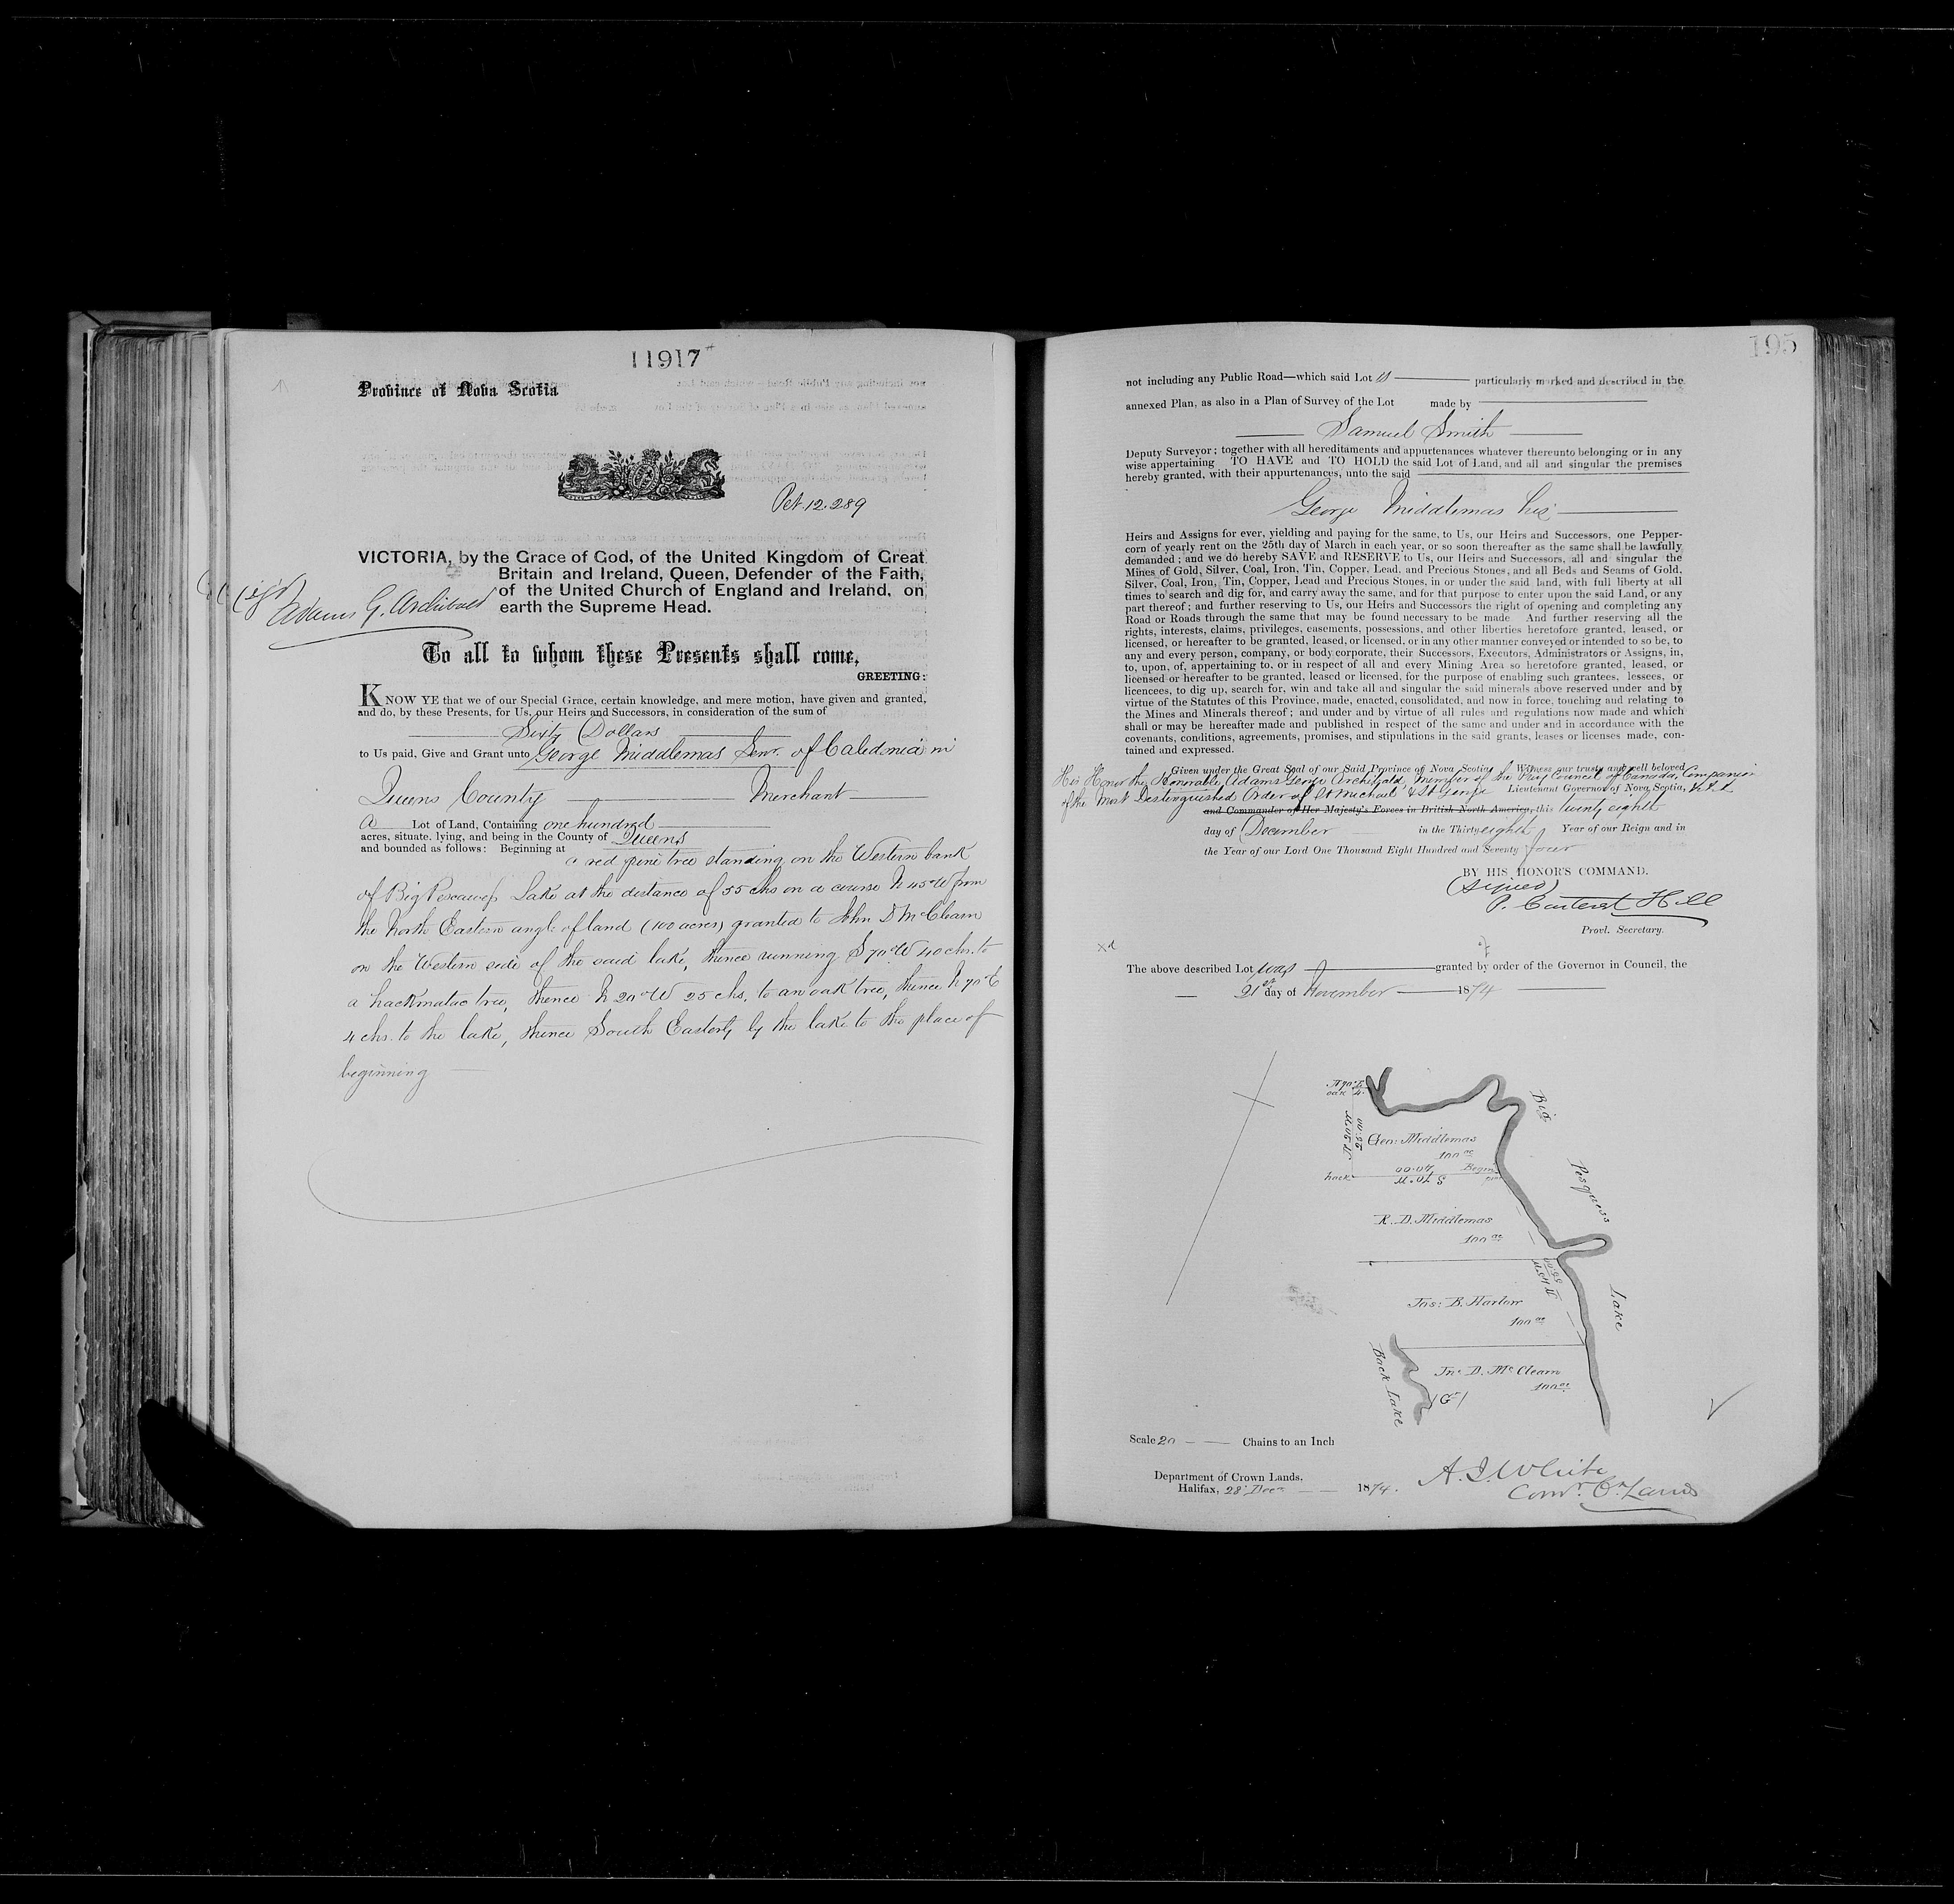 11917
Province of Nova Scotia
Pet. 12.289
VICTORIA, by the Grace of God, of the United Kingdom of Great
Britain and Ireland, Queen, Defender of the Faith,
of the United Church of England and Ireland, on
earth the Supreme Head.
(sigd)
Adams G. Archibald
To all to whom these Presents shall come,
GREETING:
KNOW YE that we of our Special Grace, certain knowledge, and mere motion, have given and granted,
and do, by these Presents, for Us, our Heirs and Successors, in consideration of the sum of
Sixty Dollars
to Us paid, Give and Grant unto George Middlemas Senr. of Caledonia in
Queens County Merchant
a Lot of Land, Containing one hundred
acres, situate, lying, and being in the County of Queens
and bounded as follows: Beginning at
a red pine tree standing on the Western bank
of Big Pescawess Lake at the distance of 55 chs on a course N 45° W from
the North Eastern angle of land (100 acres) granted to John D McClearn
on the Western side of the said lake, thence running S 70° W 40 chs. to
a hackmatac tree, thence N 20° W 25 chs. to an oak tree, thence N 70° E
4 chs. to the lake, thence South Easterly by the lake to the place of
beginning
195
not including any Public Road—which said Lot is particularly marked and described in the
annexed Plan, as also in a Plan of Survey of the Lot made by
Samuel Smith
Deputy Surveyor; together with all hereditaments and appurtenances whatever thereunto belonging or in any
wise appertaining TO HAVE and TO HOLD the said Lot of Land, and all and singular the premises
hereby granted, with their appurtenances, unto the said
George Middlemas his
Heirs and Assigns for ever, yielding and paying for the same, to Us, our Heirs and Successors, one Pepper-
corn of yearly rent on the 25th day of March in each year, or so soon thereafter as the same shall be lawfully
demanded; and we do hereby SAVE and RESERVE to Us, our Heirs and Successors, all and singular the
Mines of Gold, Silver, Coal, Iron, Tin, Copper, Lead, and Precious Stones, and all Beds and Seams of Gold,
Silver, Coal, Iron, Tin, Copper, Lead and Precious Stones, in or under the said land, with full liberty at all
times to search and dig for, and carry away the same, and for that purpose to enter upon the said Land, or any
part thereof; and further reserving to Us, our Heirs and Successors the right of opening and completing any
Road or Roads through the same that may be found necessary to be made And further reserving all the
rights, interests, claims, privileges, easements, possessions, and other liberties heretofore granted, leased, or
licensed, or hereafter to be granted, leased, or licensed, or in any other manner conveyed or intended to so be, to
any and every person, company, or body corporate, their Successors, Executors, Administrators or Assigns, in,
to, upon, of, appertaining to, or in respect of all and every Mining Area so heretofore granted, leased, or
licensed or hereafter to be granted, leased or licensed, for the purpose of enabling such grantees, lessees, or
licencees, to dig up, search for, win and take all and singular the said minerals above reserved under and by
virtue of the Statutes of this Province, made, enacted, consolidated, and now in force, touching and relating to
the Mines and Minerals thereof; and under and by virtue of all rules and regulations now made and which
shall or may be hereafter made and published in respect of the same and under and in accordance with the
covenants, conditions, agreements, promises, and stipulations in the said grants, leases or licenses made, con-
tained and expressed.
Given under the Great Seal of our Said Province of Nova Scotia Witness our trusty and well beloved
His Honor the Honorable Adams George Archibald, Member of the Privy Council of Canada, Companion
of the Most Distinguished Order of St Michael & St George Lieutenant Governor of Nova Scotia, &.&.&.
and Commander of Her Majesty's Forces in British North America, this twenty eighth
day of December in the Thirty eighth Year of our Reign and in
the Year of our Lord One Thousand Eight Hundred and Seventy four
BY HIS HONOR'S COMMAND.
(Signed)
P. Carteret Hill
Provl. Secretary.
The above described Lot was granted by order of the Governor in Council, the
21st day of November 1874
N 70° E
oak 4.
N 20° W
25.00
Geo: Middlemas
100 ac
40.00 Begin
hack S 70° W pine
R. D. Middlemas
100 ac
55.00
N 45° W
Jas: B. Harlow
100 ac
Jno D. McClearn
100 ac
(Gr)
Big
Pesquess
Lake
Back Lake
Scale 20 Chains to an Inch
Department of Crown Lands.
Halifax, 28 Decr 1874.
A. J. White
Comr. Cn. Lands